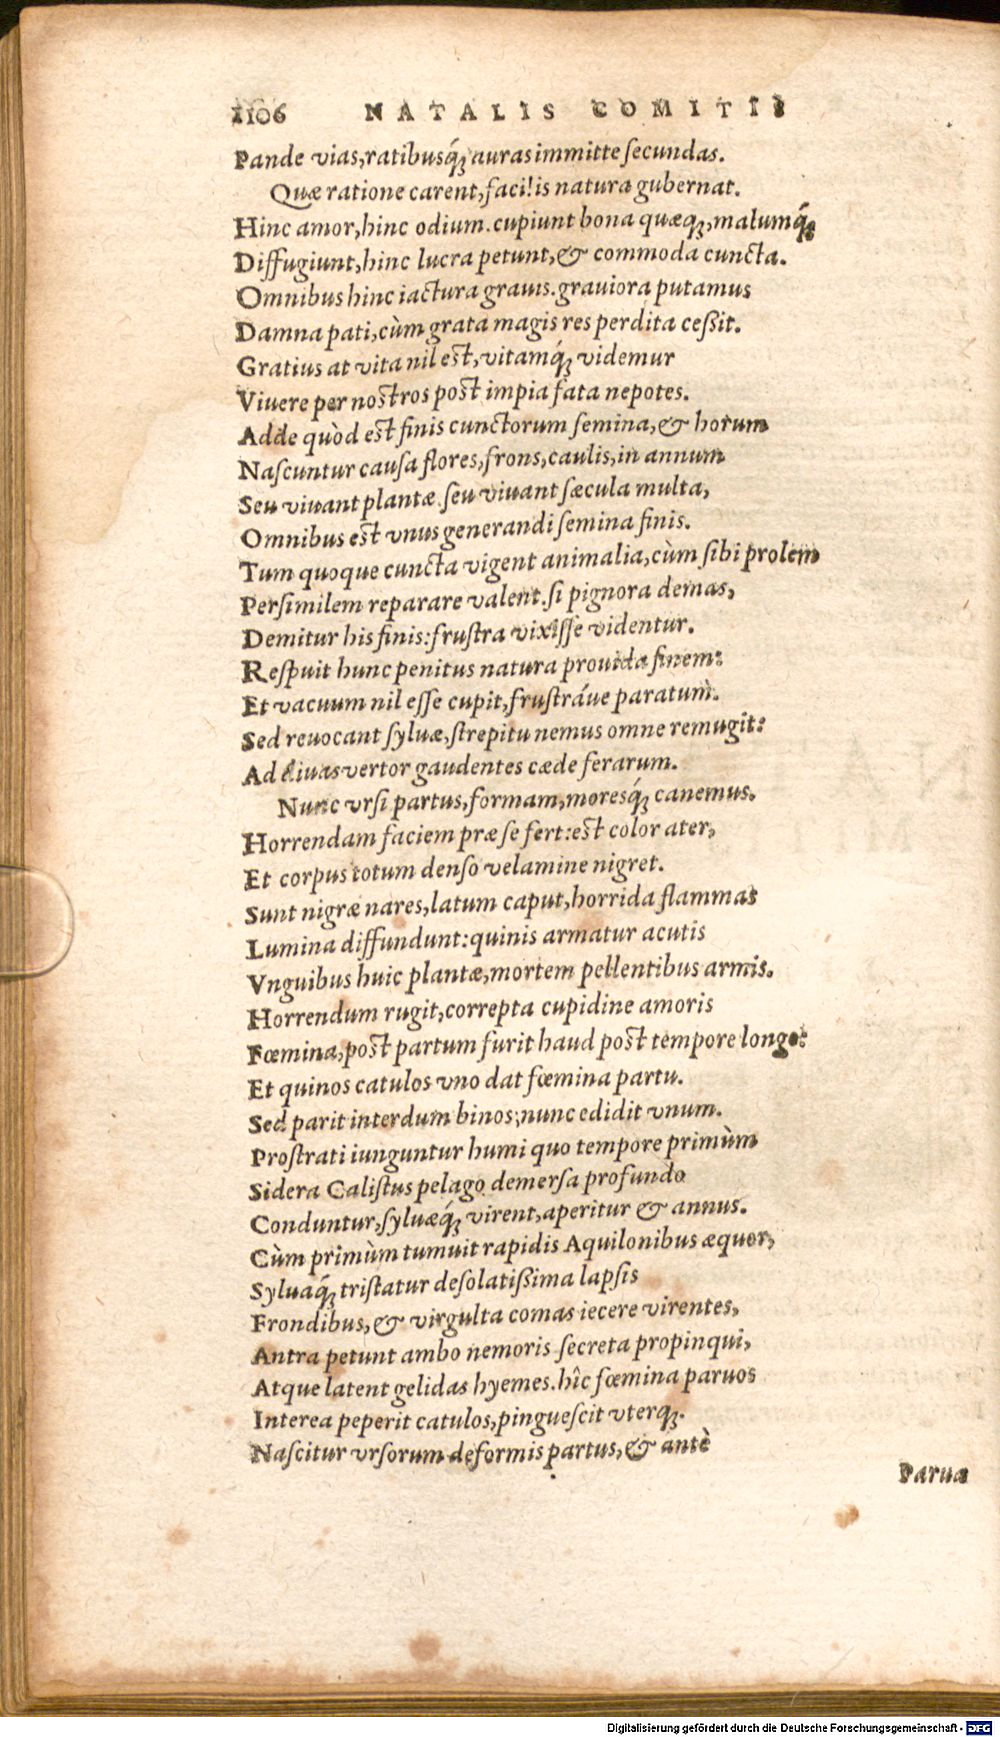 1106 NATALIS COMITIS
Pande vias, ratibusq́; auras immitte ſecundas.
Quæ ratione carent, facilis natura gubernat.
Hinc amor, hinc odium. cupiunt bona quæq;, malumq́;
Diffugiunt, hinc lucra petunt, & commoda cuncta.
Omnibus hinc iactura grauis. grauiora putamus
Damna pati, cùm grata magis res perdita ceßit.
Gratius at vita nil est, vitamq́; videmur
Viuere per nostros post impia fata nepotes.
Adde quòd est finis cunctorum ſemina, & horum
Naſcuntur cauſa flores, frons, caulis, in annum
Seu viuant plantæ ſeu viuant ſæcula multa,
Omnibus est vnus generandi ſemina finis.
Tum quoque cuncta vigent animalia, cùm ſibi prolem
Perſimilem reparare valent. ſi pignora demas,
Demitur his finis: fruſtra vixiſſe videntur.
Reſpuit hunc penitus natura prouida finem:
Et vacuum nil eſſe cupit, fruſtráue paratum.
Sed reuocant ſyluæ, ſtrepitu nemus omne remugit:
Ad diuas vertor gaudentes cæde ferarum.
Nunc vrſi partus, formam, moresq́; canemus.
Horrendam faciem præ ſe fert: est color ater,
Et corpus totum denſo velamine nigret.
Sunt nigræ nares, latum caput, horrida flammas
Lumina diffundunt: quinis armatur acutis
Vnguibus huic plantæ, mortem pellentibus armis.
Horrendum rugit, correpta cupidine amoris
Fœmina, post partum furit haud post tempore longo:
Et quinos catulos vno dat fœmina partu.
Sed parit interdum binos, nunc edidit vnum.
Proſtrati iunguntur humi quo tempore primùm
Sidera Caliſtus pelago demerſa profundo
Conduntur, ſyluæq́; virent, aperitur & annus.
Cùm primùm tumuit rapidis Aquilonibus æquor,
Syluaq́; triſtatur deſolatißima lapſis
Frondibus, & virgulta comas iecere virentes,
Antra petunt ambo nemoris ſecreta propinqui,
Atque latent gelidas hyemes. hîc fœmina paruos
Interea peperit catulos, pingueſcit vterq;.
Naſcitur vrſorum deformis partus, & antè
Parua
Digitalisierung gefördert durch die Deutsche Forschungsgemeinschaft - DFG